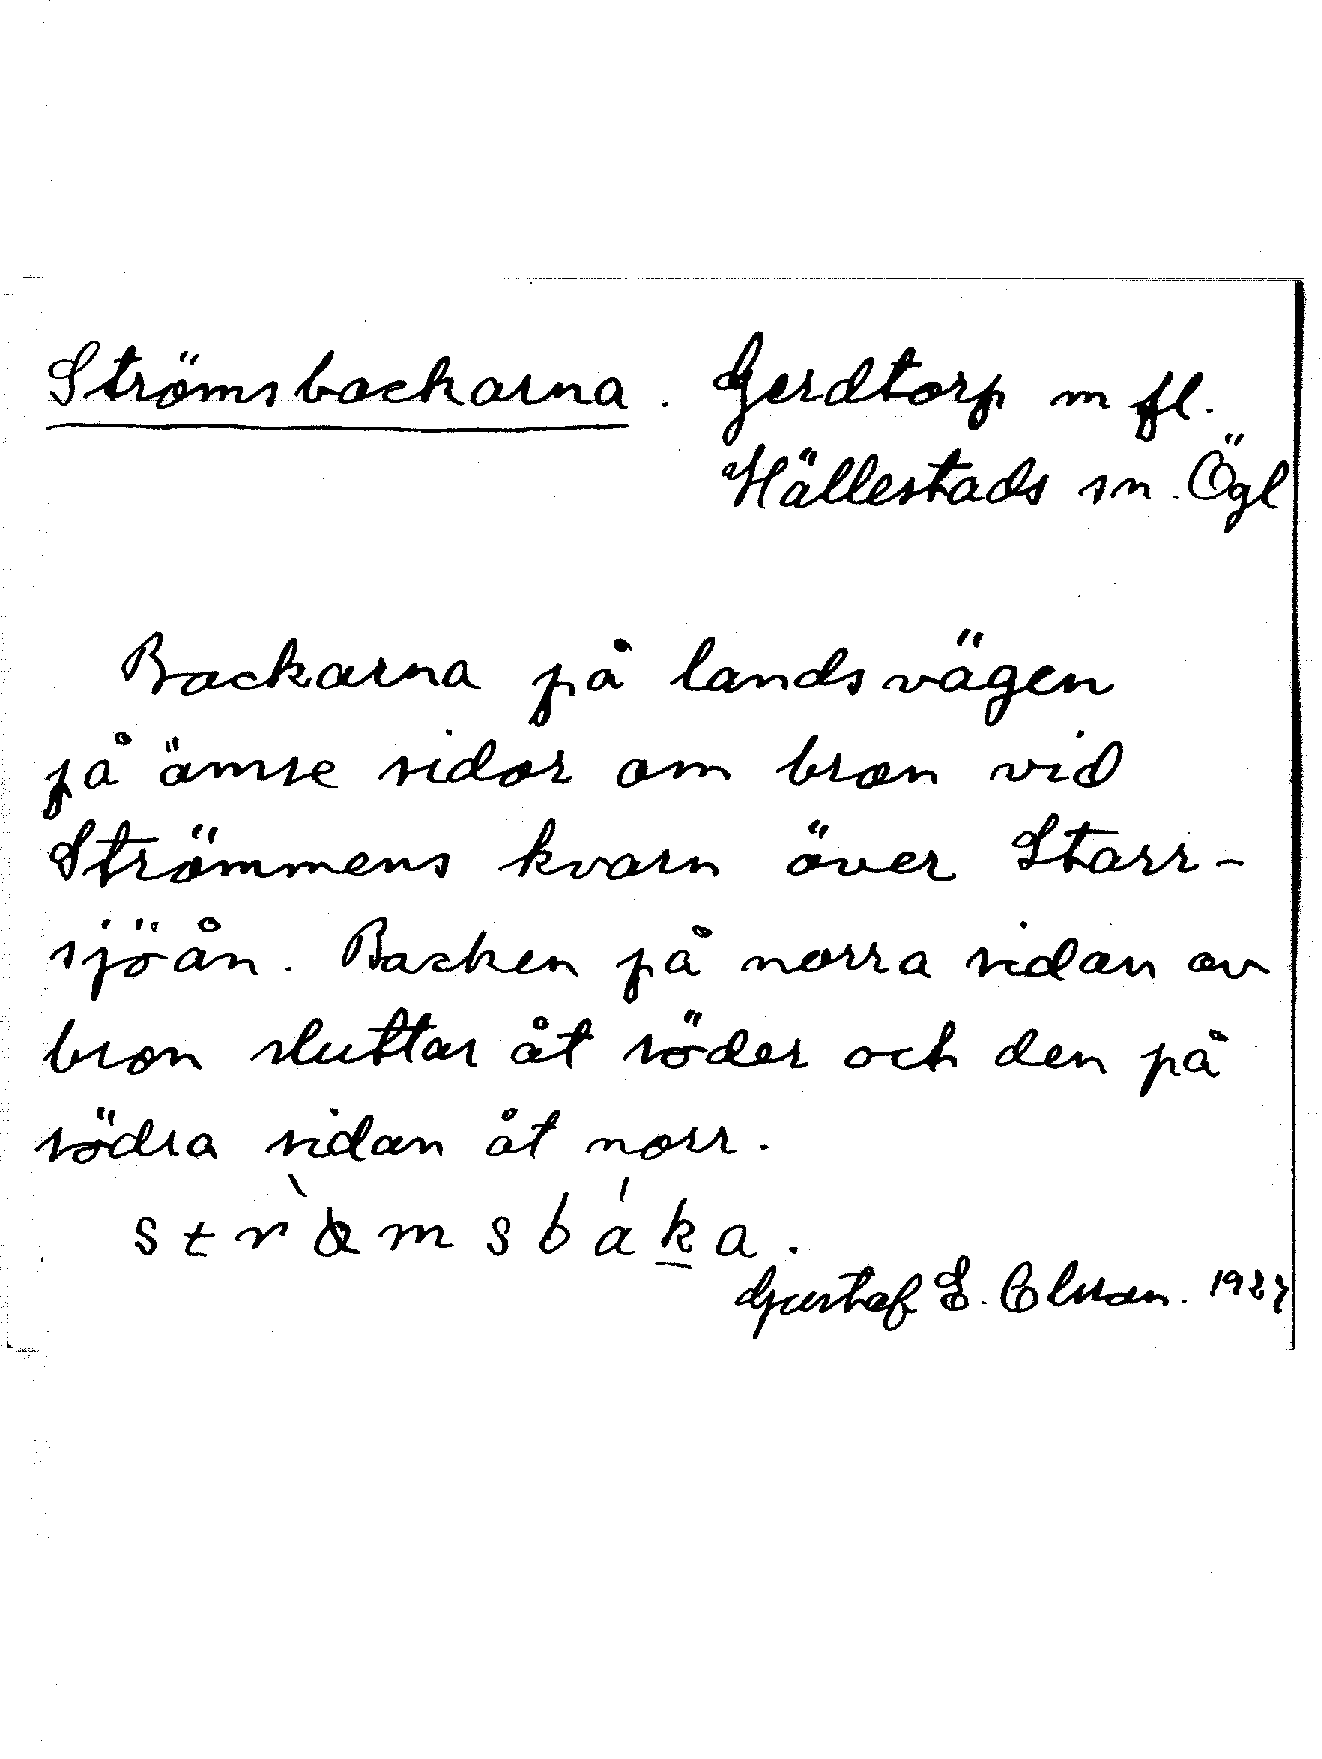 Strömsbackarna. Gerdtorp m fl.
Hällestads sn. Ögl
Backarna på landsvägen
på ömse sidor om bron vid
Strömmens kvarn över Starr-
sjöån. Backen på norra sidan av
bron sluttar åt söder och den på
södra sidan åt norr.
Gustaf E. Olsson.